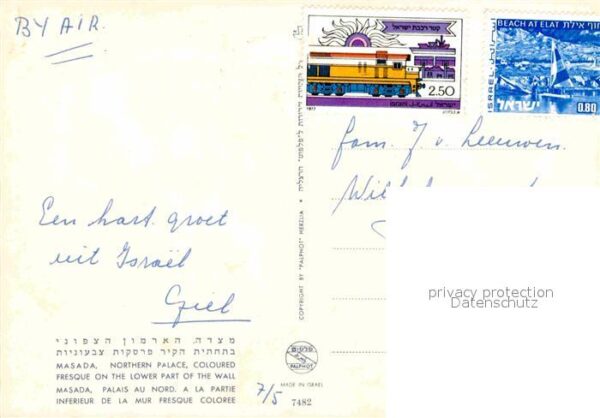 BY AIR.
Een hart. groet
uit Israël
Giel
מצדה. הארמון הצפוני
בתחתית הקיר פרסקות צבעוניות
MASADA, NORTHERN PALACE, COLOURED
FRESQUE ON THE LOWER PART OF THE WALL
MASADA, PALAIS AU NORD. A LA PARTIE
INFERIEUR DE LA MUR FRESQUE COLOREE
7/5
COPYRIGHT BY "PALPHOT" HERZLIA
פלפוט
PALPHOT
MADE IN ISRAEL
7482
קטר רכבת ישראל
2.50
ישראל
ISRAEL
1977
BEACH AT ELAT חוף אילת
ISRAEL
ישראל
0.80
Fam. J. v. Leeuwen.
privacy protection
Datenschutz